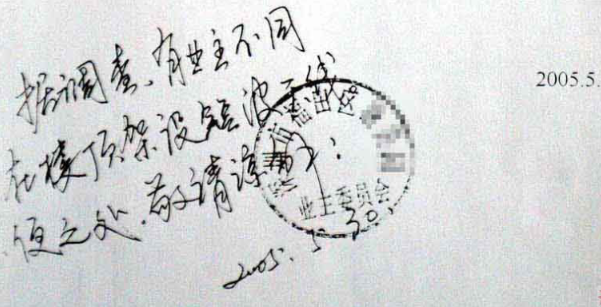 据调查,有业主不同
在楼顶架设短波天线
便之处.敬请谅
2005.5.30.
2005.5.
市福田区
业主委员会